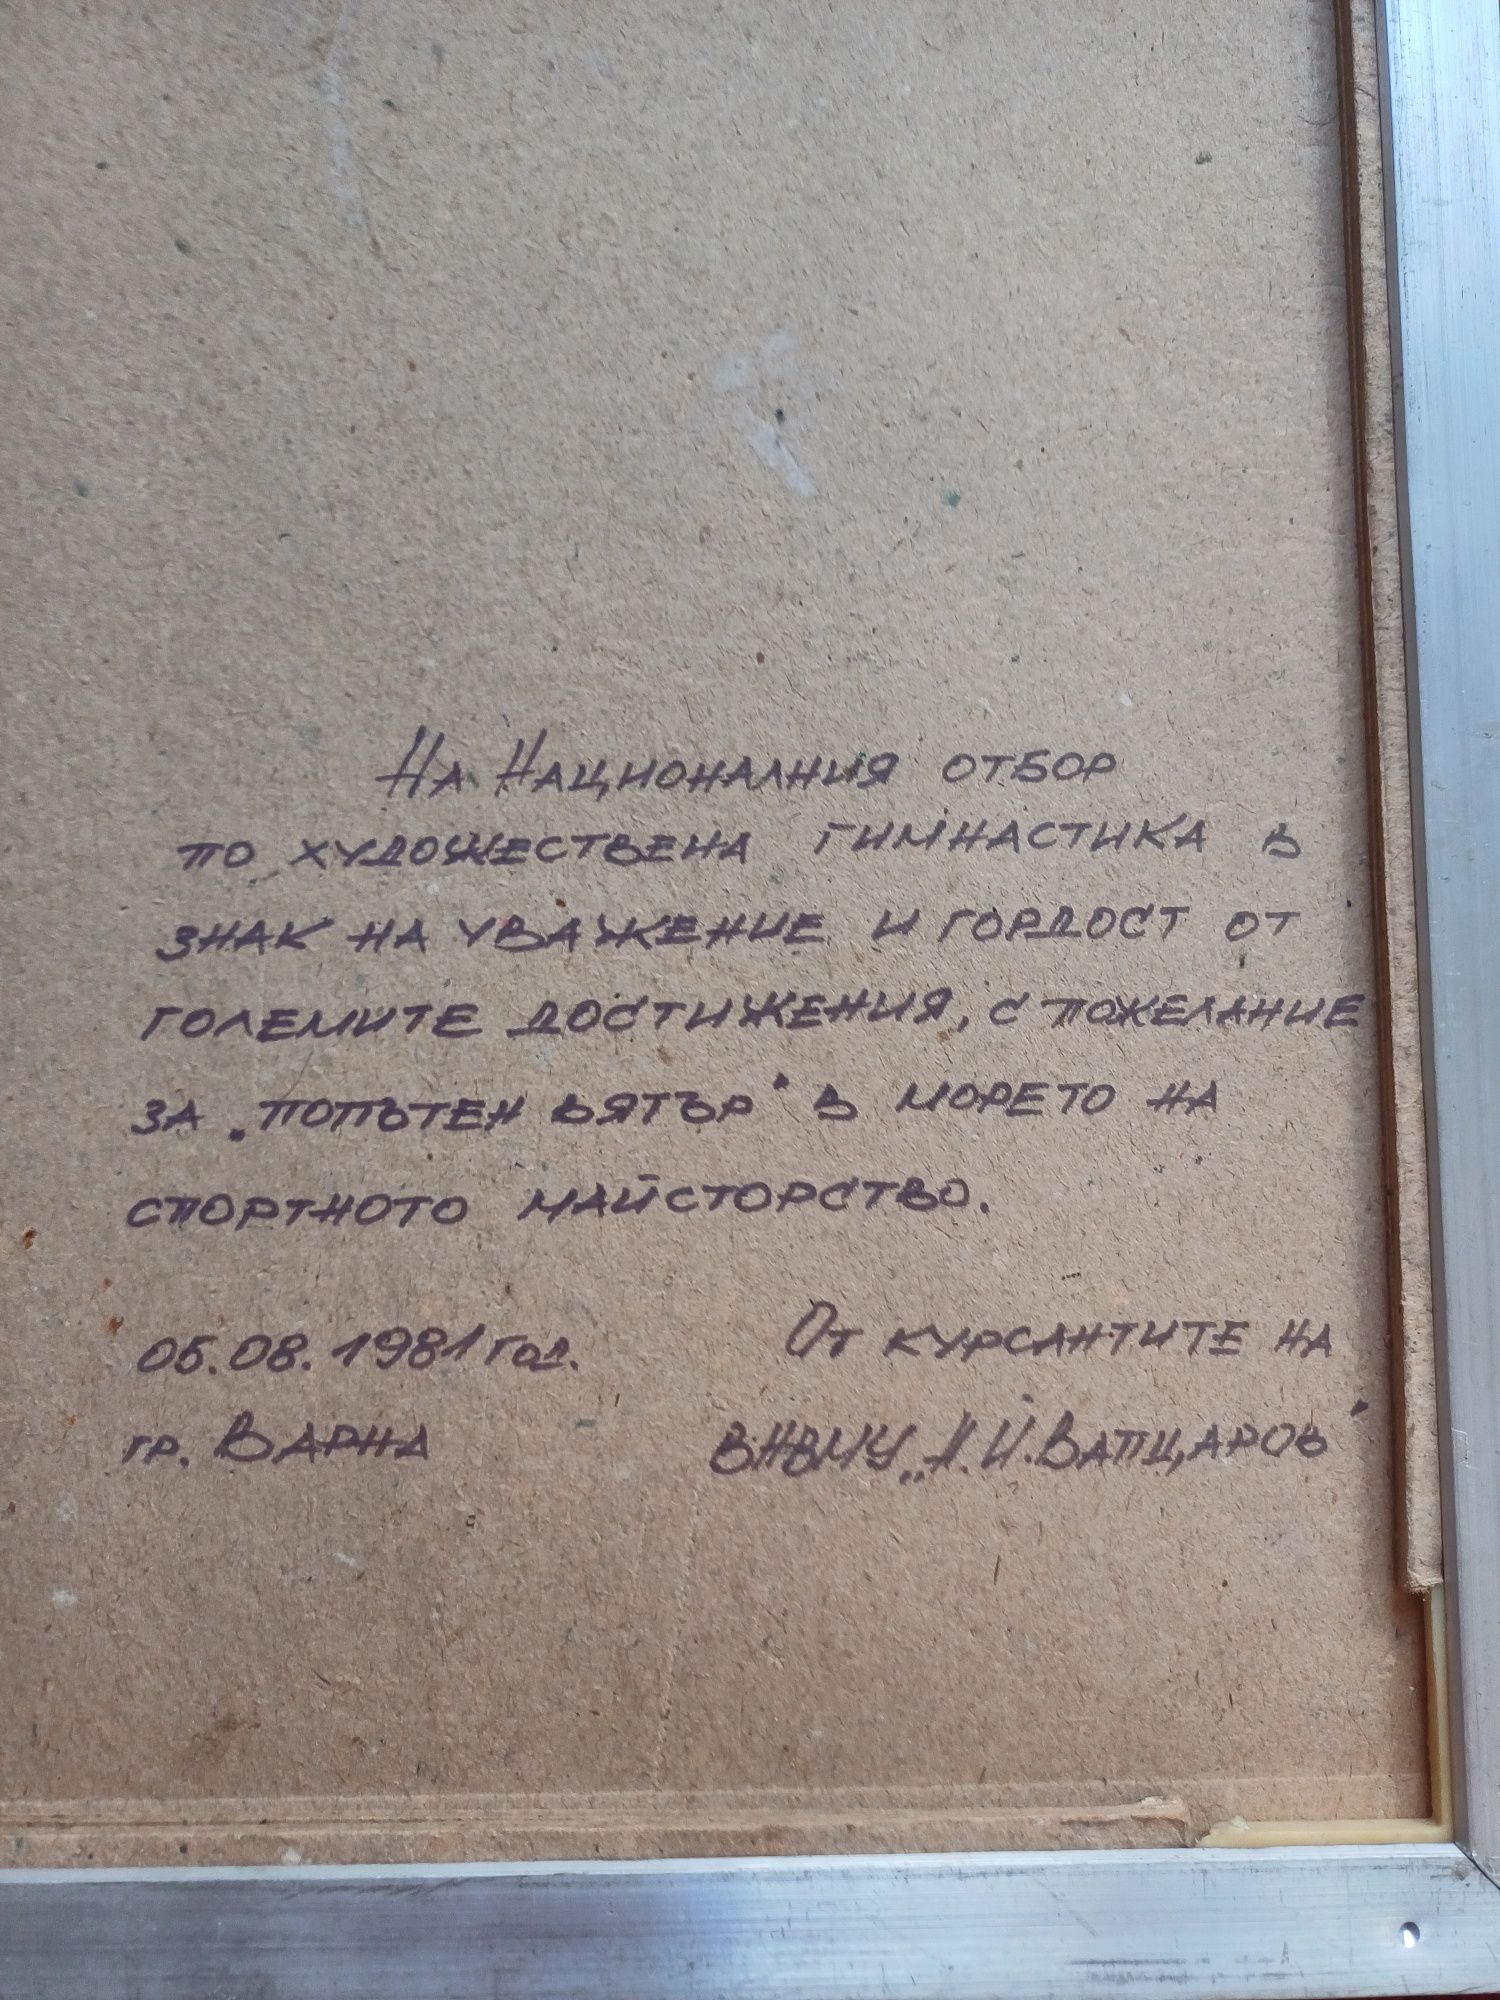 На Националния отбор
по художествена гимнастика в
знак на уважение и гордост от
големите достижения, с пожелание
за „попътен вятър" в морето на
спортното майсторство.
05.08.1981 год.
От курсантите на
гр. Варна
ВНВМУ „Н.Й.Вапцаров"